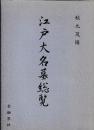 秋元茂陽
江戸大名墓総覧
金融界社